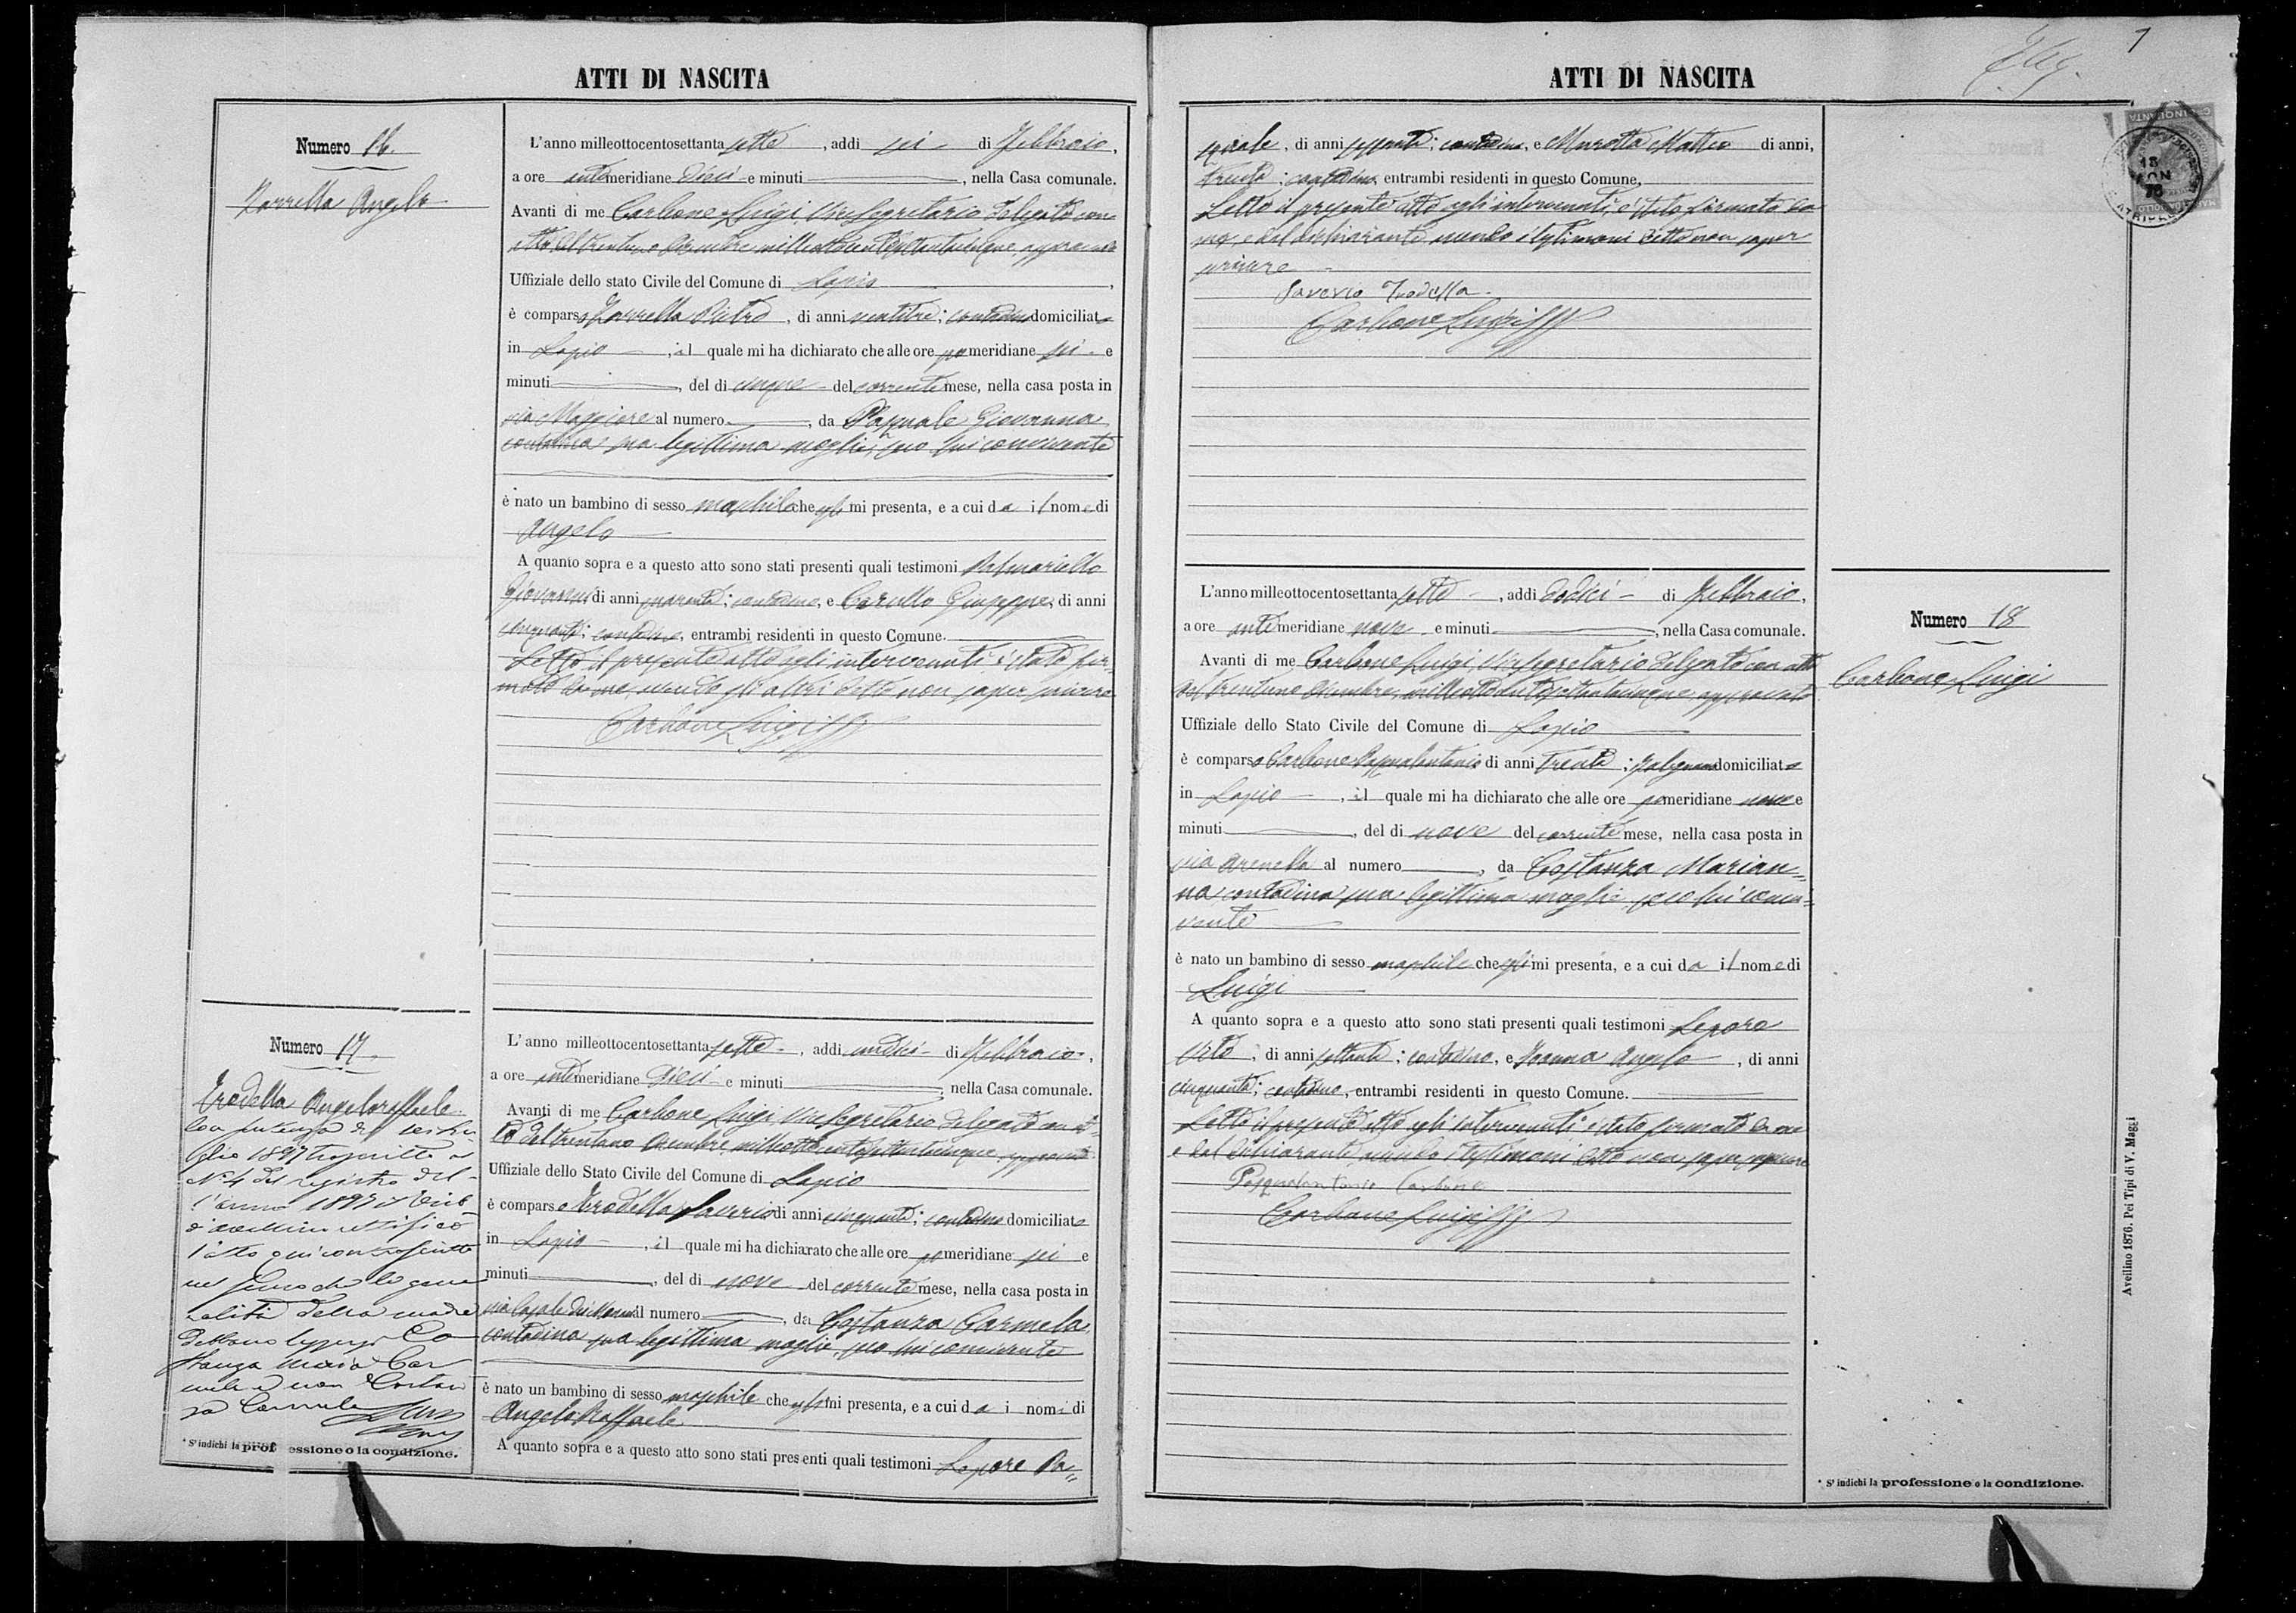 ATTI DI NASCITA
Numero 16.
L'anno milleottocentosettantasette, addì sei di Febbraio,
a ore antimeridiane dieci e minuti, nella Casa comunale.
Avanti di me Carbone Luigi Vicesegretario delegato con
atto del trentuno Dicembre milleottocentosettantacinque approvato
Uffiziale dello stato Civile del Comune di Lapio,
è comparso Pietro, di anni ventitre; contadino domiciliato
in Lapio, il quale mi ha dichiarato che alle ore pomeridiane sei e
minuti, del dì cinque del corrente mese, nella casa posta in
via Maggiore al numero, da Pasquale Giovanna
contadina sua legittima moglie, seco lui convivente
è nato un bambino di sesso maschile che egli mi presenta, e a cui da il nome di
Angelo
A quanto sopra e a questo atto sono stati presenti quali testimoni
Giovanni di anni quaranta; contadino, e Carullo Giuseppe, di anni
cinquanta; contadino, entrambi residenti in questo Comune.
Letto il presente atto agli intervenuti è stato fir-
mato da me, avendo gli altri detto non saper scrivere
Carbone Luigi
Numero 17.
Trodella Angeloraffaele
L'anno milleottocentosettantasette, addì undici di Febbraio,
a ore antimeridiane dieci e minuti, nella Casa comunale.
Avanti di me Carbone Luigi Vicesegretario delegato con at-
to del trentuno Dicembre milleottocentosettantacinque approvato
Uffiziale dello Stato Civile del Comune di Lapio
è comparso Trodella Saverio di anni cinquanta; contadino domiciliato
in Lapio, il quale mi ha dichiarato che alle ore pomeridiane sei e
minuti, del dì nove del corrente mese, nella casa posta in
via Casale al numero, da Costanza Carmela
contadina sua legittima moglie, seco lui convivente
è nato un bambino di sesso maschile che egli mi presenta, e a cui da i nomi di
Angelo Raffaele
A quanto sopra e a questo atto sono stati presenti quali testimoni Lepore Pa=
Con sentenza del
1897 trascritta al
N° 4 del registro del-
l'anno 1897 il Trib.
d'Avellino rettificò
l'atto qui controscritto
nel senso che le gene
ralità della madre
debbano leggersi Co
stanza Maria Car
mela e non Costan
za Carmela
* S'indichi la professione o la condizione.
ATTI DI NASCITA
7
squale, di anni sessanta; contadino, e Marotta Matteo di anni,
trenta; contadino, entrambi residenti in questo Comune,
Letto il presente atto agli intervenuti, è stato firmato da
me e dal dichiarante avendo i testimoni detto non saper
scrivere
Saverio Trodella
Carbone Luigi
Numero 18
Carbone Luigi
L'anno milleottocentosettantasette, addì dodici di Febbraio,
a ore antimeridiane nove e minuti, nella Casa comunale.
Avanti di me Carbone Luigi, Vicesegretario delegato con atto
del trentuno Dicembre milleottocentosettantacinque approvato
Uffiziale dello Stato Civile del Comune di Lapio
è comparso Carbone Pasqualantonio di anni trenta; falegname domiciliato
in Lapio, il quale mi ha dichiarato che alle ore pomeridiane nove e
minuti, del dì nove del corrente mese, nella casa posta in
via Arenella al numero, da Costanza Marian=
na contadina sua legittima moglie, seco lui convi=
vente
è nato un bambino di sesso maschile che egli mi presenta, e a cui da il nome di
Luigi
A quanto sopra e a questo atto sono stati presenti quali testimoni Lepore
Vito, di anni settanta; contadino, e Angelo, di anni
cinquanta; contadino, entrambi residenti in questo Comune.
Letto il presente atto agli intervenuti è stato firmato da me
e dal dichiarante, avendo i testimoni detto non saper scrivere
Pasqualantonio Carbone
Carbone Luigi
* S'indichi la professione o la condizione.
Avellino 1876. Pei Tipi di V. Maggi